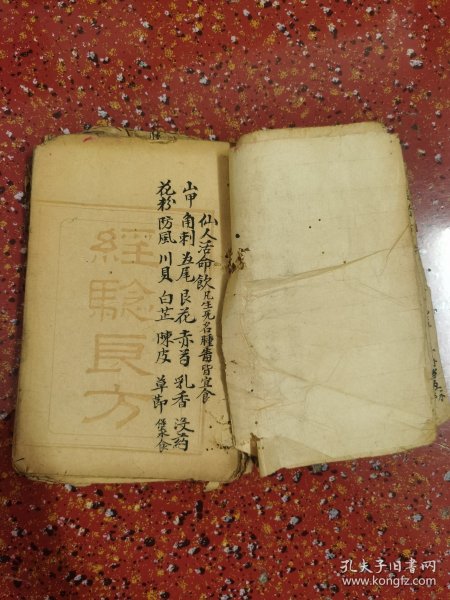 仙人活命飲凡生无名腫毒皆宜食
山甲 角刺 歸尾 艮花 赤芍 乳香 沒药
花粉 防風 川貝 白芷 陳皮 草節 煲水食
經驗良方
孔夫子旧书网
www.kongfz.com